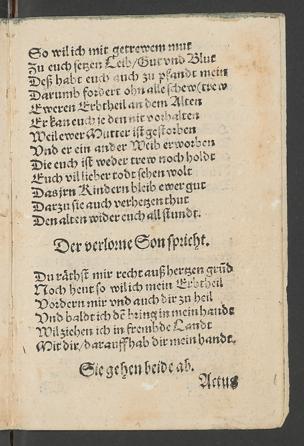 So wil ich mit getrewem mut
Zu euch setzen Leib/Gut vnd Blut
Deß habt euch auch zu pfandt mein
Darumb fordert ohn alle schew (trew
Eweren Erbtheil an dem Alten
Er kan euch ie den nit vorhalten
Weil ewer Mutter ist gestorben
Vnd er ein ander Weib erworben
Die euch ist weder trew noch holdt
Euch vil lieber todt sehen wolt
Das jrn Kindern bleib ewer gut
Darzu sie auch verhetzen thut
Den alten wider euch all stundt.
Der verlorne Son spricht.
Du räthst mir recht auß hertzen grūd
Noch heut so wil ich mein Erbtheil
Vordern mir vnd auch dir zu heil
Vnd baldt ich dē bring in mein handt
Wil ziehen ich in frembde Landt
Mit dir/darauff hab dir mein handt.
Sie gehen beide ab.
Actus